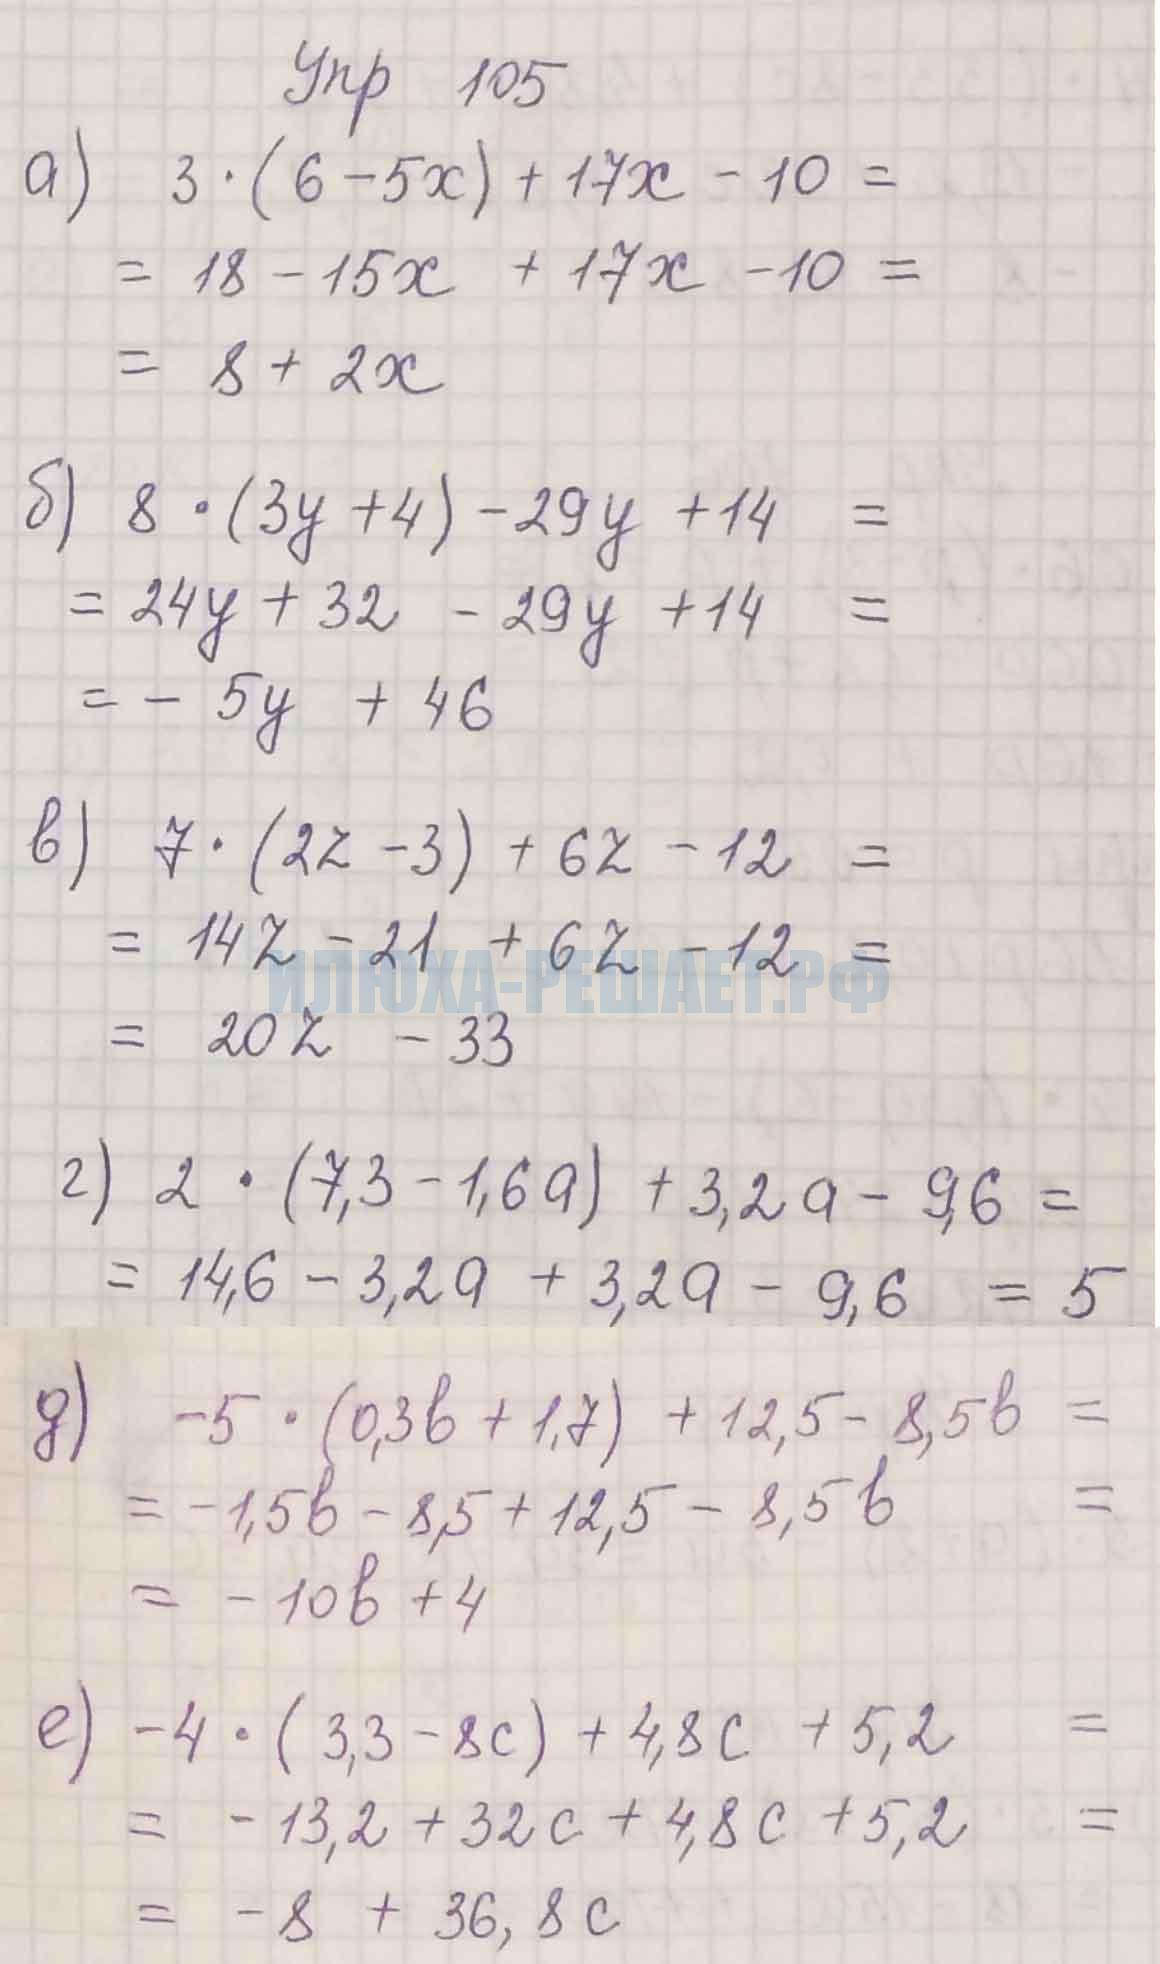 Упр 105
а) 3·(6-5x)+17x-10=
=18-15x+17x-10=
=8+2x
б) 8·(3y+4)-29y+14=
=24y+32-29y+14=
=-5y+46
в) 7·(2z-3)+6z-12=
=14z-21+6z-12=
ИЛЮХА-РЕШАЕТ.РФ
=20z-33
г) 2·(7,3-1,6a)+3,2a-9,6=
=14,6-3,2a+3,2a-9,6=5
д) -5·(0,3b+1,7)+12,5-8,5b=
=-1,5b-8,5+12,5-8,5b=
=-10b+4
е) -4·(3,3-8c)+4,8c+5,2=
=-13,2+32c+4,8c+5,2=
=-8+36,8c